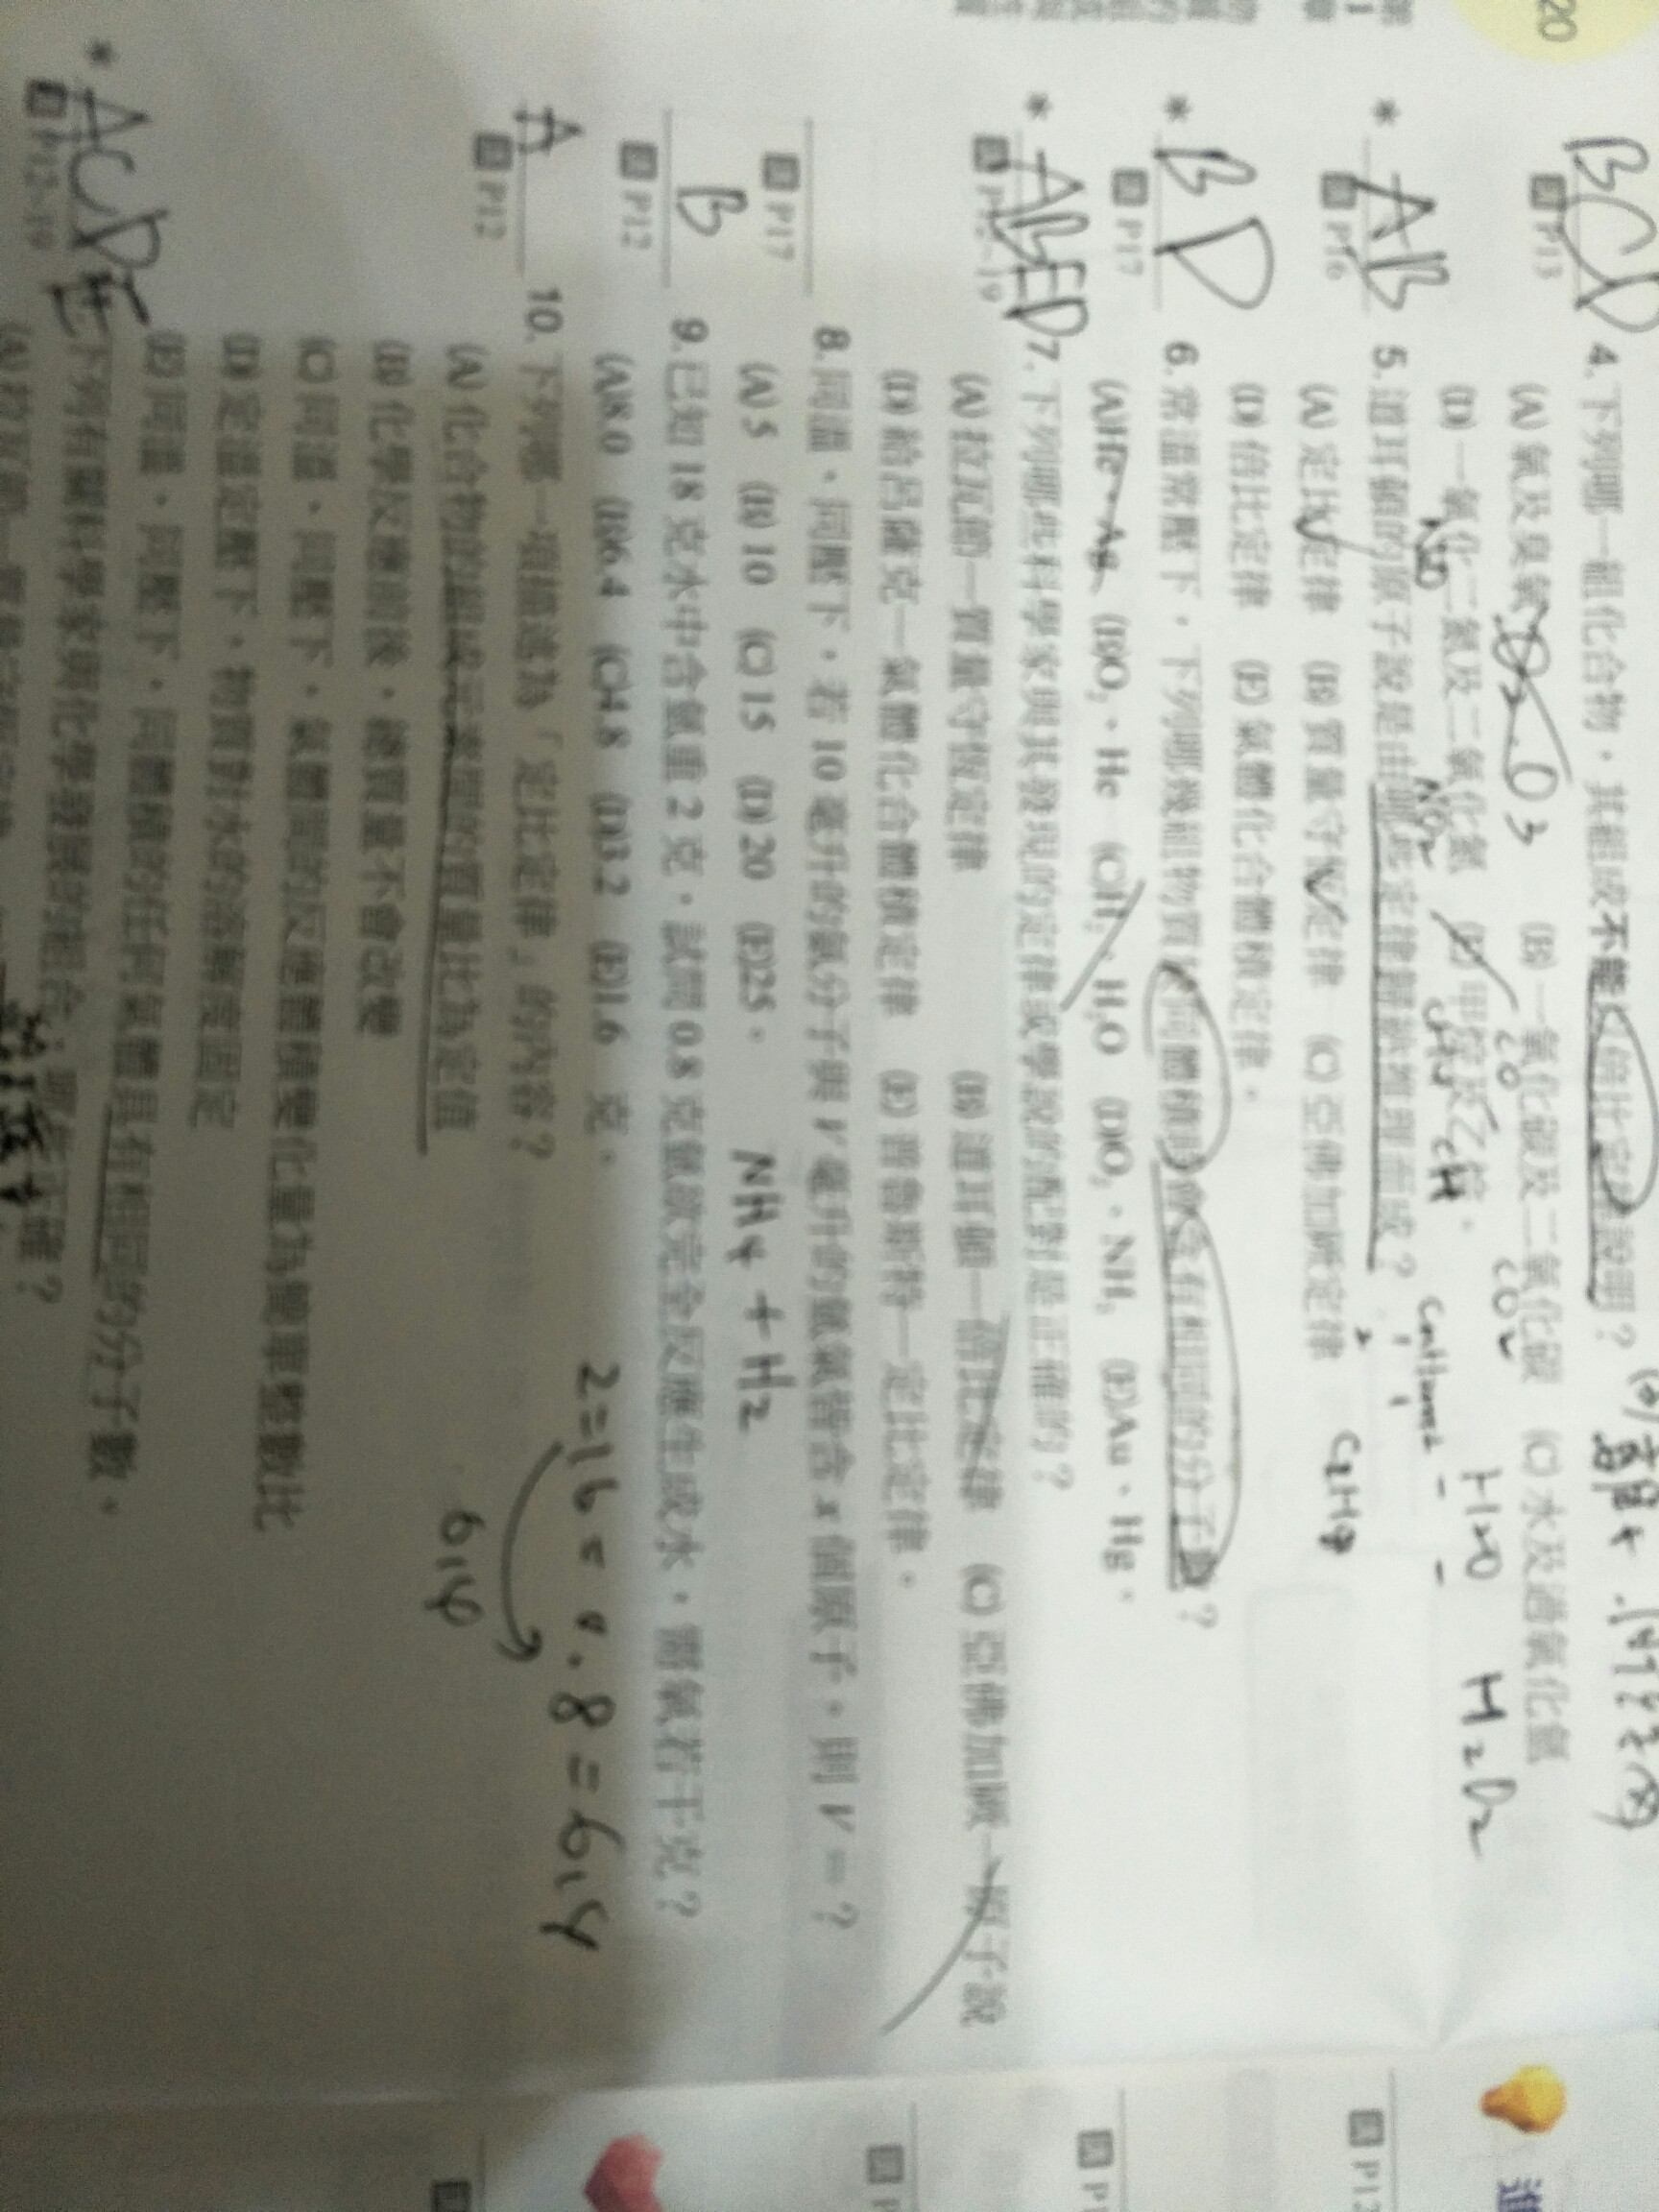 20
BCD
4. 下列哪一組化合物，其組成不能以倍比定律說明？
P13
(A) 氧及臭氧 (B) 一氧化碳及二氧化碳 (C) 水及過氧化氫
O3 CO CO2 H2O H2O2
(D) 一氧化二氮及二氧化氮 (E) 甲烷及乙烷。
N2O NO2 CH4
* AB
5. 道耳頓的原子說是由哪些定律歸納推理而成？
P16
(A) 定比定律 (B) 質量守恆定律 (C) 亞佛加厥定律
(D) 倍比定律 (E) 氣體化合體積定律。
* BD
6. 常溫常壓下，下列哪幾組物質於同體積時會含有相同的分子數？
P17
(A) He、Ag (B) O2、He (C) H2、H2O (D) O2、NH3 (E) Au、Hg。
* ABED
7. 下列哪些科學家與其發現的定律或學說的配對是正確的？
P12~19
(A) 拉瓦節－質量守恆定律 (B) 道耳頓－倍比定律 (C) 亞佛加厥－原子說
(D) 給呂薩克－氣體化合體積定律 (E) 普魯斯特－定比定律。
8. 同溫、同壓下，若 10 毫升的氨分子與 V 毫升的氫氣皆含 x 個原子，則 V = ？
P17
(A) 5 (B) 10 (C) 15 (D) 20 (E) 25。
NH4 + H2
B
9. 已知 18 克水中含氫重 2 克，試問 0.8 克氫欲完全反應生成水，需氧若干克？
P12
(A) 8.0 (B) 6.4 (C) 4.8 (D) 3.2 (E) 1.6 克。
A
10. 下列哪一項描述為「定比定律」的內容？
P12
(A) 化合物的組成元素間的質量比為定值
(B) 化學反應前後，總質量不會改變
(C) 同溫、同壓下，氣體間的反應體積變化量為簡單整數比
(D) 定溫定壓下，物質對水的溶解度固定
(E) 同溫、同壓下，同體積的任何氣體具有相同的分子數。
* ACDE
下列有關科學家與化學發展的組合，哪些正確？
P12~19